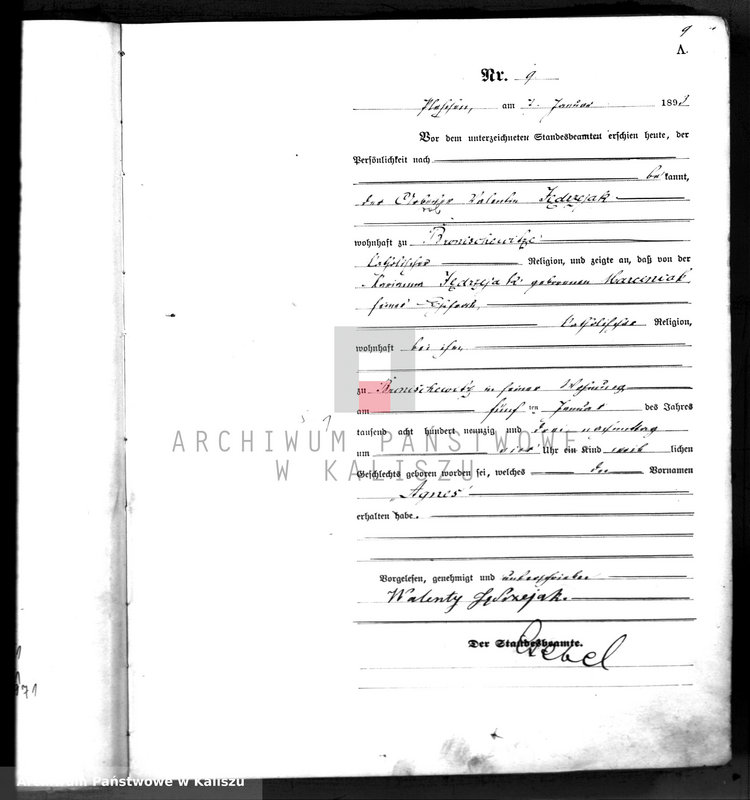 9
A.
Nr. 9
Pleschen, am 7. Januar 1893
Vor dem unterzeichneten Standesbeamten erschien heute, der
Persönlichkeit nach
bekannt,
der Valentin Jędrzejak
wohnhaft zu Bronischewitz
katholischer Religion, und zeigte an, daß von der
Marianna Jędrzejak geborenen Marciniak
seiner Ehefrau,
katholischer Religion,
wohnhaft bei ihm
zu Bronischewitz in seiner Wohnung
am fünf ten Januar des Jahres
tausend acht hundert neunzig und drei nachmittag
um vier Uhr ein Kind weib lichen
Geschlechts geboren worden sei, welches den Vornamen
Agnes
erhalten habe.
Vorgelesen, genehmigt und unterschrieben
Walenty Jędrzejak.
Der Standesbeamte.
ARCHIWUM PAŃSTWOWE
W KALISZU
71
Archiwum Państwowe w Kaliszu